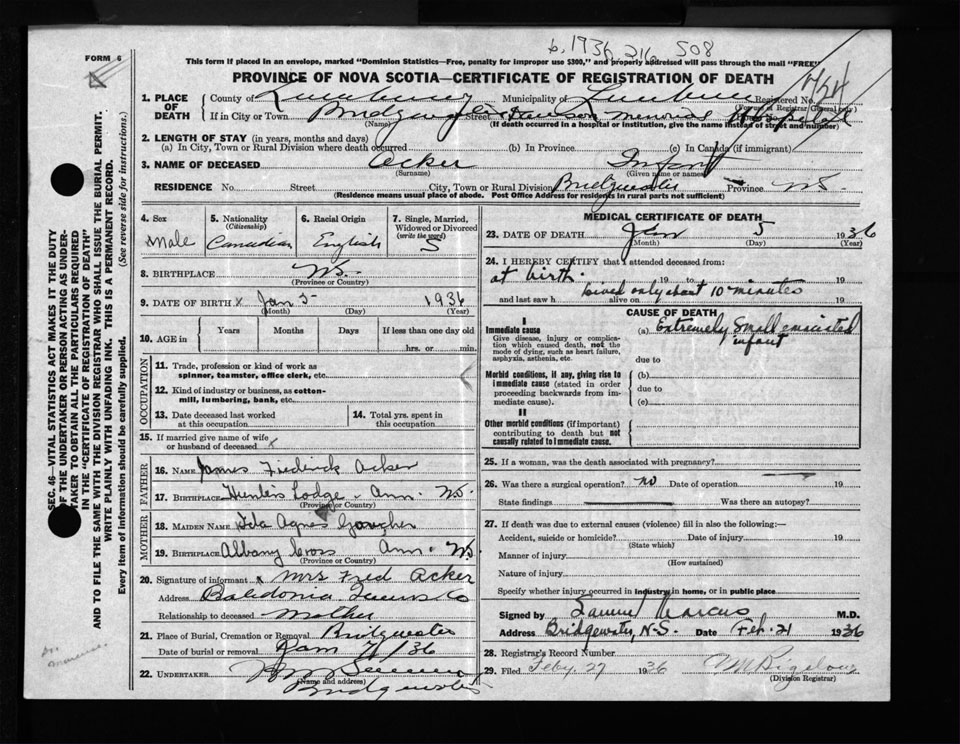 b. 1936 216 508
FORM 6
This form if placed in an envelope, marked "Dominion Statistics—Free, penalty for improper use $300," and properly addressed will pass through the mail "FREE"
PROVINCE OF NOVA SCOTIA—CERTIFICATE OF REGISTRATION OF DEATH
1. PLACE OF DEATH
County of Lunenburg Municipality of Lunenburg Registered No. 424
(For use of Registrar General only)
If in City or Town Bridgewater Street Dawson Memorial Hospital
(Name) (If death occurred in a hospital or institution, give the name instead of street and number)
2. LENGTH OF STAY (in years, months and days)
(a) In City, Town or Rural Division where death occurred (b) In Province (c) In Canada (if immigrant)
3. NAME OF DECEASED Acker Infant
(Surname) (Given name or names)
RESIDENCE No. Street City, Town or Rural Division Bridgewater Province N.S.
(Residence means usual place of abode. Post Office Address for residents in rural parts not sufficient)
4. Sex Male
5. Nationality (Citizenship) Canadian
6. Racial Origin English
7. Single, Married, Widowed or Divorced (write the word) S
8. BIRTHPLACE N.S.
(Province or Country)
9. DATE OF BIRTH x Jan 5 1936
(Month) (Day) (Year)
10. AGE in Years Months Days If less than one day old
hrs. or min.
OCCUPATION
11. Trade, profession or kind of work as spinner, teamster, office clerk, etc.
12. Kind of industry or business, as cotton-mill, lumbering, bank, etc.
13. Date deceased last worked at this occupation
14. Total yrs. spent in this occupation
15. If married give name of wife or husband of deceased x
FATHER
16. NAME James Frederick Acker
17. BIRTHPLACE Hunters Lodge - Ann. N.S.
(Province or Country)
MOTHER
18. MAIDEN NAME Ida Agnes
19. BIRTHPLACE Albany Cross Ann. N.S.
(Province or Country)
20. Signature of informant x Mrs Fred Acker
Address Caledonia Queens Co
Relationship to deceased Mother
21. Place of Burial, Cremation or Removal Bridgewater
Date of burial or removal Jan 7/36
22. UNDERTAKER
(Name and address)
Bridgewater
MEDICAL CERTIFICATE OF DEATH
23. DATE OF DEATH Jan 5 1936
(Month) (Day) (Year)
24. I HEREBY CERTIFY that I attended deceased from:
at birth. 19 to 19
and last saw h alive on 19
Lived only about 10 minutes
CAUSE OF DEATH
I
Immediate cause
Give disease, injury or complication which caused death, not the mode of dying, such as heart failure, asphyxia, asthenia, etc.
(a) Extremely small emaciated infant
due to
Morbid conditions, if any, giving rise to immediate cause (stated in order proceeding backwards from immediate cause).
(b)
due to
(c)
II
Other morbid conditions (if important) contributing to death but not causally related to immediate cause.
25. If a woman, was the death associated with pregnancy?
26. Was there a surgical operation? no Date of operation 19
State findings Was there an autopsy?
27. If death was due to external causes (violence) fill in also the following:—
Accident, suicide or homicide? Date of injury 19
(State which)
Manner of injury
(How sustained)
Nature of injury
Specify whether injury occurred in industry, in home, or in public place
Signed by Samuel Marcus M.D.
Address Bridgewater, N.S. Date Feb. 21 1936
28. Registrar's Record Number
29. Filed Feby 27 1936
(Division Registrar)
SEC. 46—VITAL STATISTICS ACT MAKES IT THE DUTY OF THE UNDERTAKER OR PERSON ACTING AS UNDERTAKER TO OBTAIN ALL THE PARTICULARS REQUIRED IN THE "CERTIFICATE OF REGISTRATION OF DEATH" AND TO FILE THE SAME WITH THE DIVISION REGISTRAR WHO SHALL ISSUE THE BURIAL PERMIT.
WRITE PLAINLY WITH UNFADING INK. THIS IS A PERMANENT RECORD.
Every item of information should be carefully supplied. (See reverse side for instructions.)